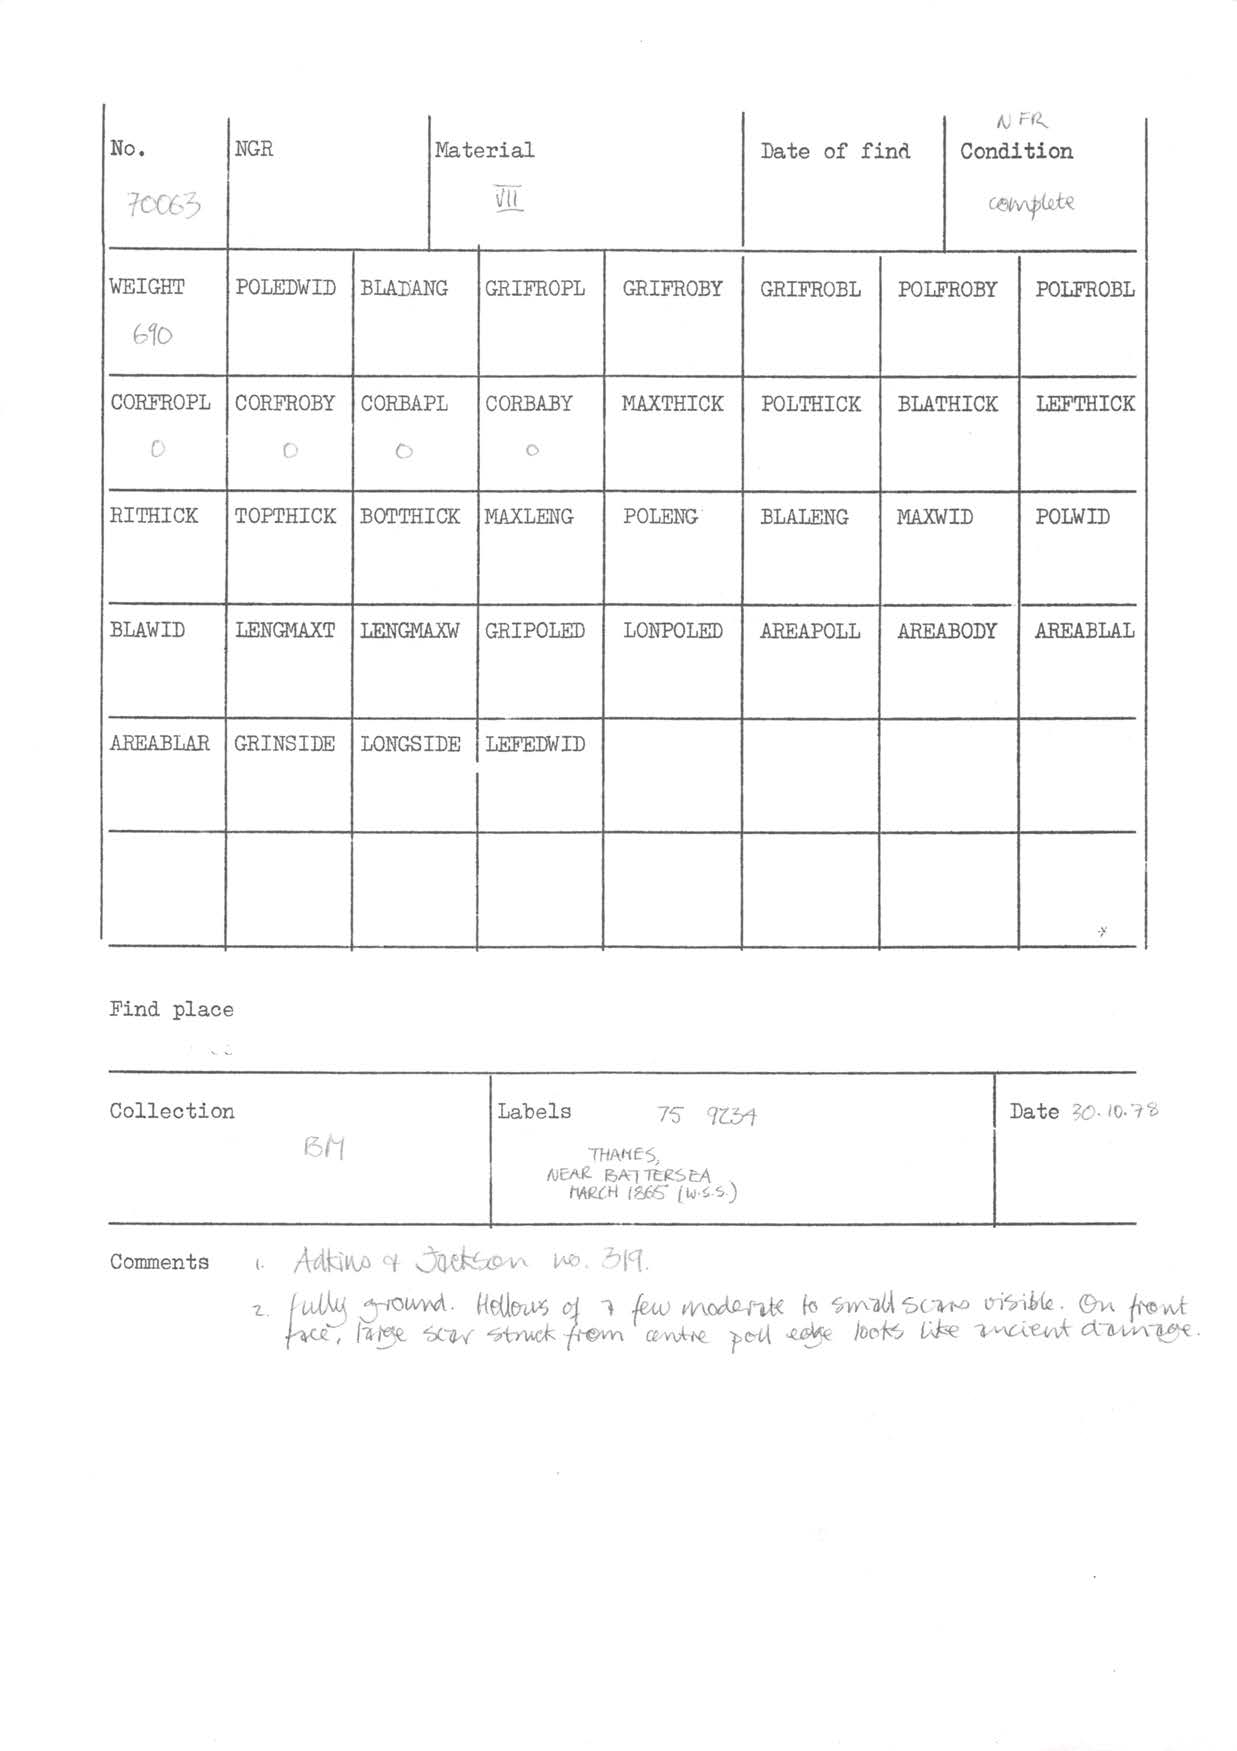 NFR
No. NGR Material Date of find Condition
70063 VII complete
WEIGHT POLEDWID BLADANG GRIFROPL GRIFROBY GRIFROBL POLFROBY POLFROBL
690
CORFROPL CORFROBY CORBAPL CORBABY MAXTHICK POLTHICK BLATHICK LEFTHICK
0 0 0 0
RITHICK TOPTHICK BOTTHICK MAXLENG POLENG BLALENG MAXWID POLWID
BLAWID LENGMAXT LENGMAXW GRIPOLED LONPOLED AREAPOLL AREABODY AREABLAL
AREABLAR GRINSIDE LONGSIDE LEFEDWID
Find place
Collection Labels 75 9Z34 Date 30.10.78
BM THAMES,
NEAR BATTERSEA
MARCH 1865 (W.S.S.)
Comments 1. Adkins & Jackson no. 319.
2. fully ground. Hollows of a few moderate to small scars visible. On front
face, large scar struck from centre poll edge looks like ancient damage.